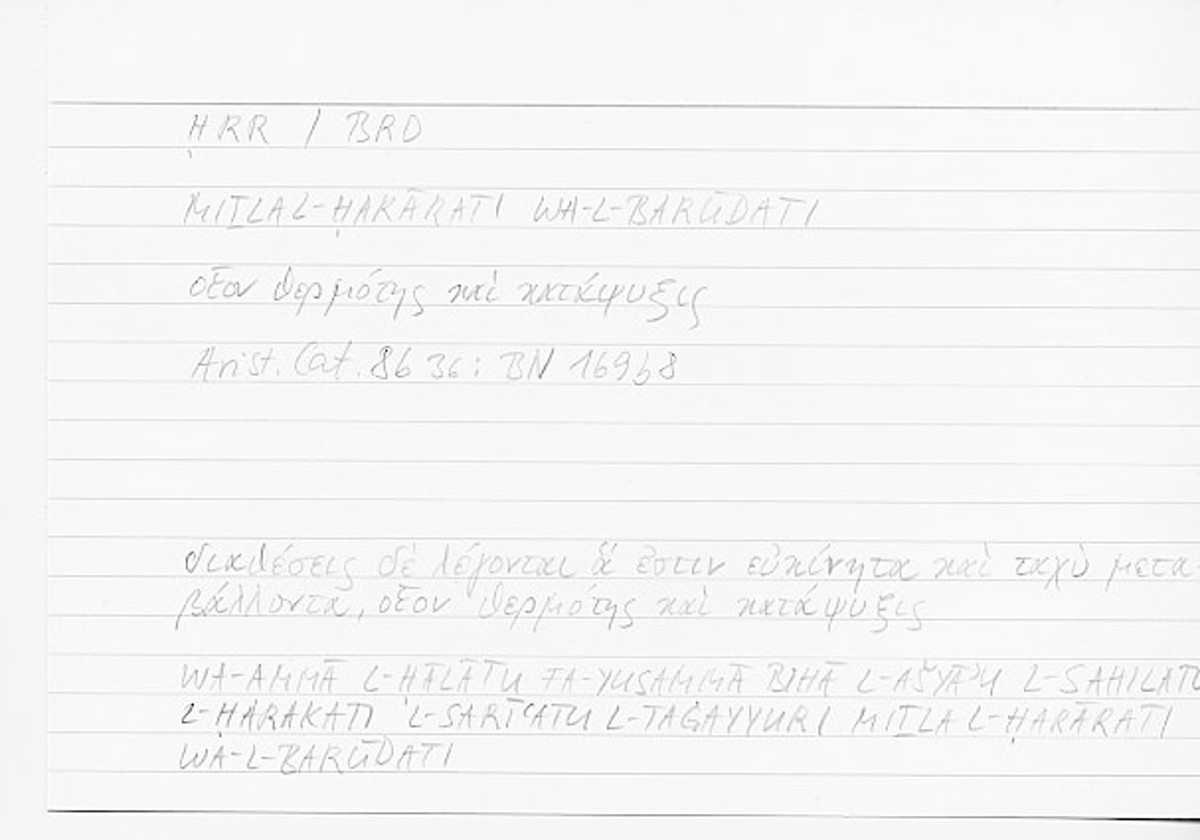 ḤRR / BRD
MIṮLA L-ḤARĀRATI WA-L-BARŪDATI
οἷον θερμότης καὶ κατάψυξις
Arist. Cat. 8b 36 : BN 169b8
διαθέσεις δὲ λέγονται ἅ ἐστιν εὐκίνητα καὶ ταχὺ μετα-
βάλλοντα, οἷον θερμότης καὶ κατάψυξις
WA-AMMĀ L-ḤĀLĀTU FA-YUSAMMĀ BIHĀ L-AŠYĀʾU L-SAHILATU
L-ḤARAKATI L-SARĪʿATU L-TAĠAYYURI MIṮLA L-ḤARĀRATI
WA-L-BARŪDATI